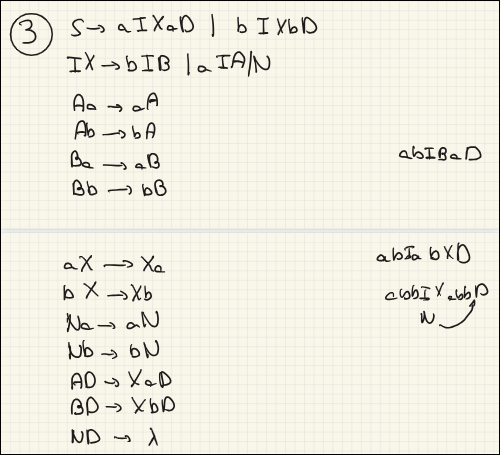 3 S → aIXaD | bIXbD
IX → bIB | aIA|N
Aa → aA
Ab → bA
Ba → aB
abIBaD
Bb → bB
aX → Xa
abIabXD
bX → Xb
Na → aN
N
Nb → bN
AD → XaD
BD → XbD
ND → λ